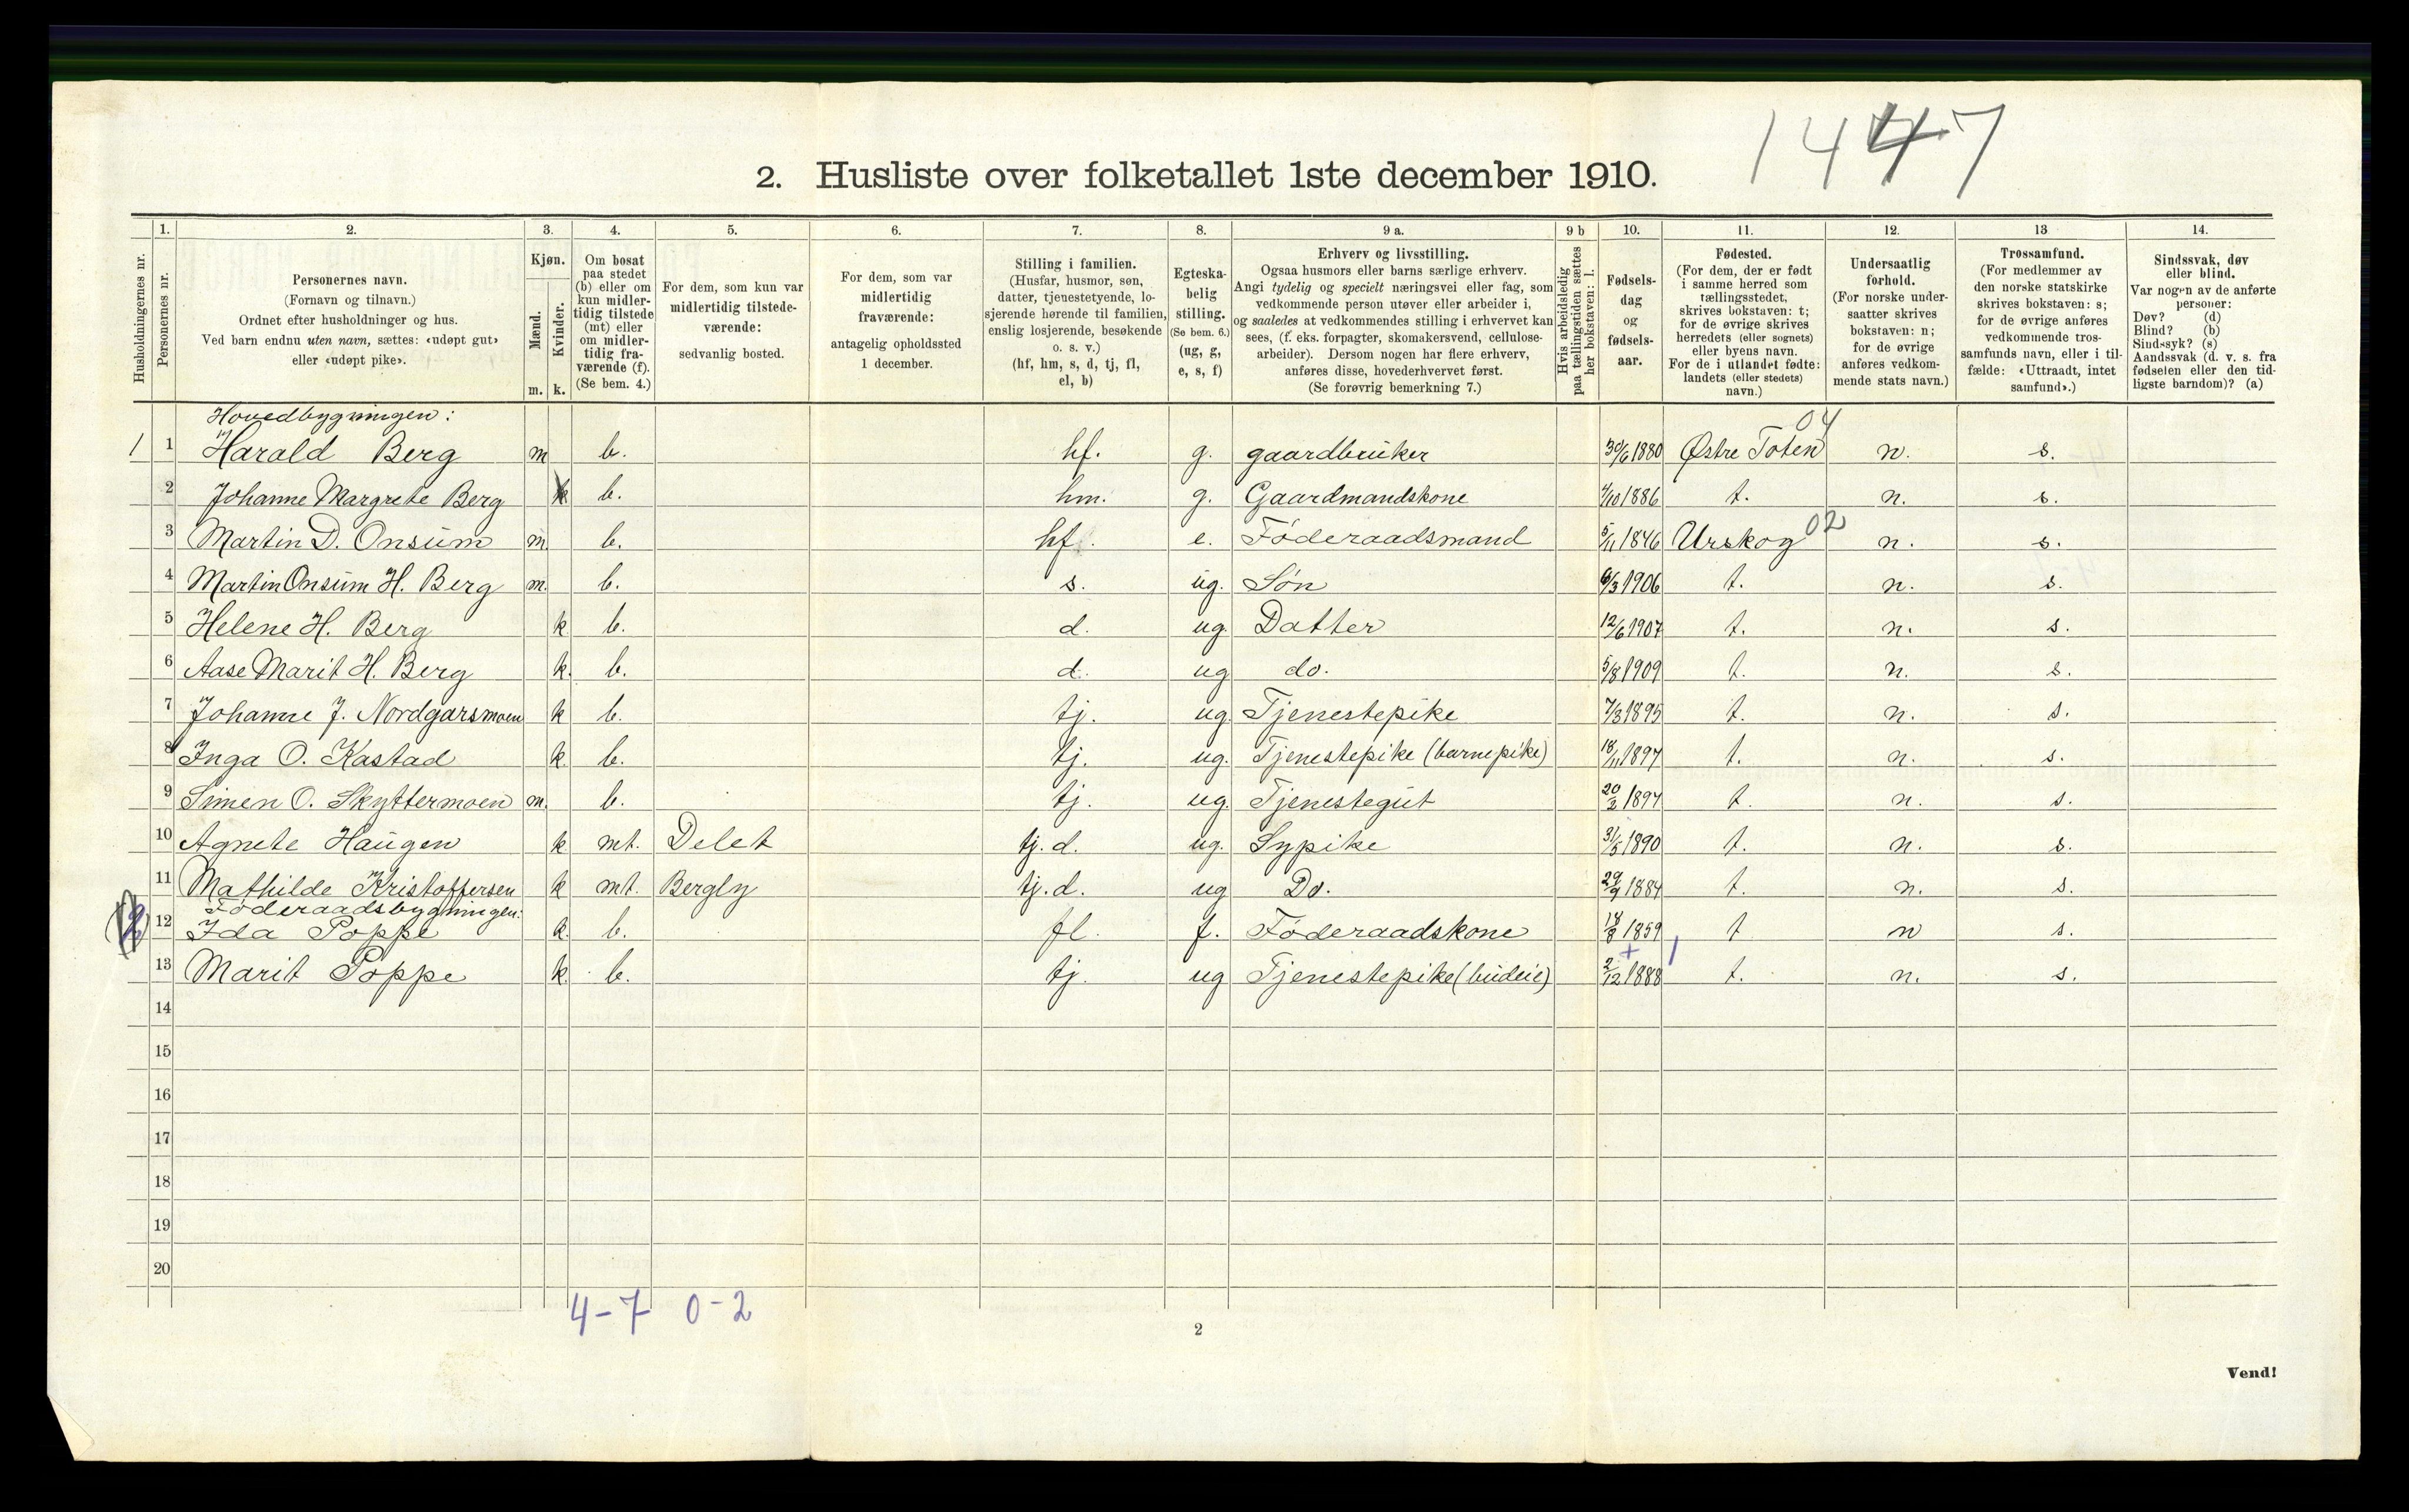 1447
2. Husliste over folketallet 1ste december 1910.
Husholdningernes nr.
1.
Personernes nr.
2.
Personernes navn.
(Fornavn og tilnavn.)
Ordnet efter husholdninger og hus.
Ved barn endnu uten navn, sættes: «udøpt gut»
eller «udøpt pike».
3.
Kjøn.
Mænd.
Kvinder.
m. k.
4.
Om bosat
paa stedet
(b) eller om
kun midler-
tidig tilstede
(mt) eller
om midler-
tidig fra-
værende (f).
(Se bem. 4.)
5.
For dem, som kun var
midlertidig tilstede-
værende:
sedvanlig bosted.
6.
For dem, som var
midlertidig
fraværende:
antagelig opholdssted
1 december.
7.
Stilling i familien.
(Husfar, husmor, søn,
datter, tjenestetyende, lo-
sjerende hørende til familien,
enslig losjerende, besøkende
o. s. v.)
(hf, hm, s, d, tj, fl,
el, b)
8.
Egteska-
belig
stilling.
(Se bem. 6.)
(ug, g,
e, s, f)
9 a.
Erhverv og livsstilling.
Ogsaa husmors eller barns særlige erhverv.
Angi tydelig og specielt næringsvei eller fag, som
vedkommende person utøver eller arbeider i,
og saaledes at vedkommendes stilling i erhvervet kan
sees, (f. eks. forpagter, skomakersvend, cellulose-
arbeider). Dersom nogen har flere erhverv,
anføres disse, hovederhvervet først.
(Se forøvrig bemerkning 7.)
9 b
Hvis arbeidsledig
paa tællingstiden sættes
her bokstaven: l.
10.
Fødsels-
dag
og
fødsels-
aar.
11.
Fødested.
(For dem, der er født
i samme herred som
tællingsstedet,
skrives bokstaven: t;
for de øvrige skrives
herredets (eller sognets)
eller byens navn.
For de i utlandet fødte:
landets (eller stedets)
navn.)
12.
Undersaatlig
forhold.
(For norske under-
saatter skrives
bokstaven: n;
for de øvrige
anføres vedkom-
mende stats navn.)
13
Trossamfund.
(For medlemmer av
den norske statskirke
skrives bokstaven: s;
for de øvrige anføres
vedkommende tros-
samfunds navn, eller i til-
fælde: «Uttraadt, intet
samfund».)
14.
Sindssvak, døv
eller blind.
Var nogen av de anførte
personer:
Døv? (d)
Blind? (b)
Sindssyk? (s)
Aandssvak (d. v. s. fra
fødselen eller den tid-
ligste barndom)? (a)
Hovedbygningen: 04
1 1 Harald Berg m b. hf. g. gaardbruker 30/6 1880 Østre Toten n. s.
2 Johanne Margrete Berg k b. hm. g. Gaardmandskone 4/10 1886 t. n. s.
02
3 Martin D. Onsum m. b. hf. e. Föderaadsmand 5/11 1846 Urskog n. s.
4 Martin Onsum H. Berg m. b. s. ug. Sön 6/3 1906 t. n. s.
5 Helene H. Berg k b. d. ug. Datter 12/6 1907 t. n. s.
6 Aase Marit H. Berg k. b. d. ug do. 5/8 1909 t. n. s.
7 Johanne J. Nordgarsmoen k b. tj. ug. Tjenestepike 7/3 1895 t. n. s.
8 Inga O. Kastad k. b. tj. ug. Tjenestepike (barnepike) 18/11 1897 t. n. s.
9 Simen O. Skyttermoen m. b. tj. ug. Tjenestegut 20/2 1894 t. n. s.
10 Agnete Haugen k mt. Delet tj. d. ug. Sypike 31/5 1890 t. n. s.
11 Mathilde Kristoffersen k mt. Bergly tj. d. ug Do. 29/9 1884 t. n. s.
Föderaadsbygningen:
12 Ida Poppe k. b. fl. f. Föderaadskone 18/8 1859 t n s.
+ 1
13 Marit Poppe k. b. tj. ug Tjenestepike (budeie) 2/12 1888 t. n. s.
14
15
16
17
18
19
20
4-7 0-2
2
Vend!